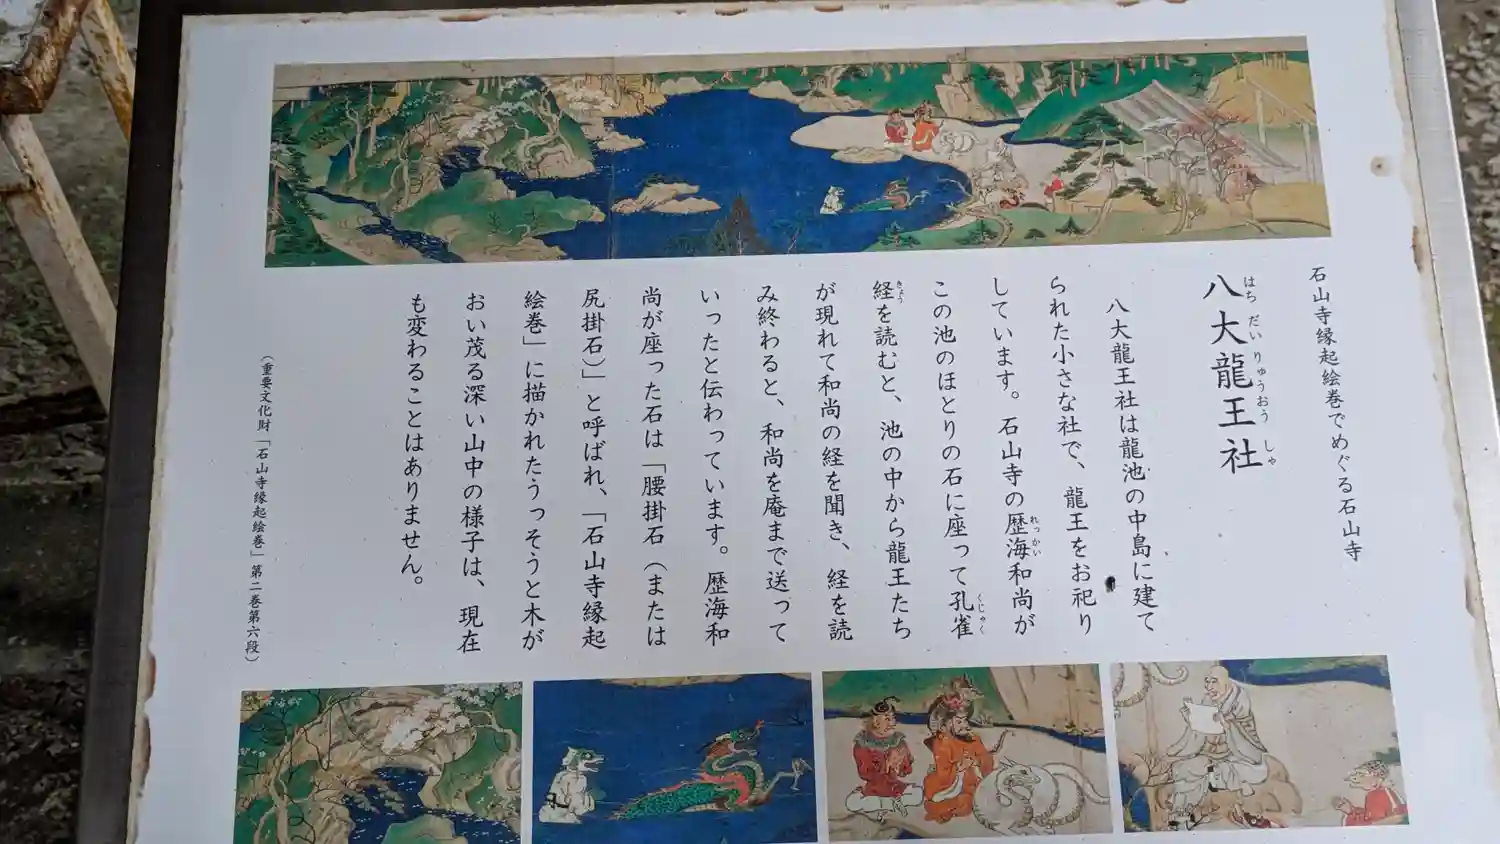 石山寺縁起絵巻でめぐる石山寺
八大龍王社
はち だい りゅうおう しゃ
八大龍王社は龍池の中島に建て
られた小さな社で、龍王をお祀り
しています。石山寺の歴海和尚が
れっかい
この池のほとりの石に座って孔雀
くじゃく
経を読むと、池の中から龍王たち
きょう
が現れて和尚の経を聞き、経を読
み終わると、和尚を庵まで送って
いったと伝わっています。歴海和
尚が座った石は「腰掛石（または
尻掛石）」と呼ばれ、「石山寺縁起
絵巻」に描かれたうっそうと木が
おい茂る深い山中の様子は、現在
も変わることはありません。
（重要文化財「石山寺縁起絵巻」第二巻第六段）